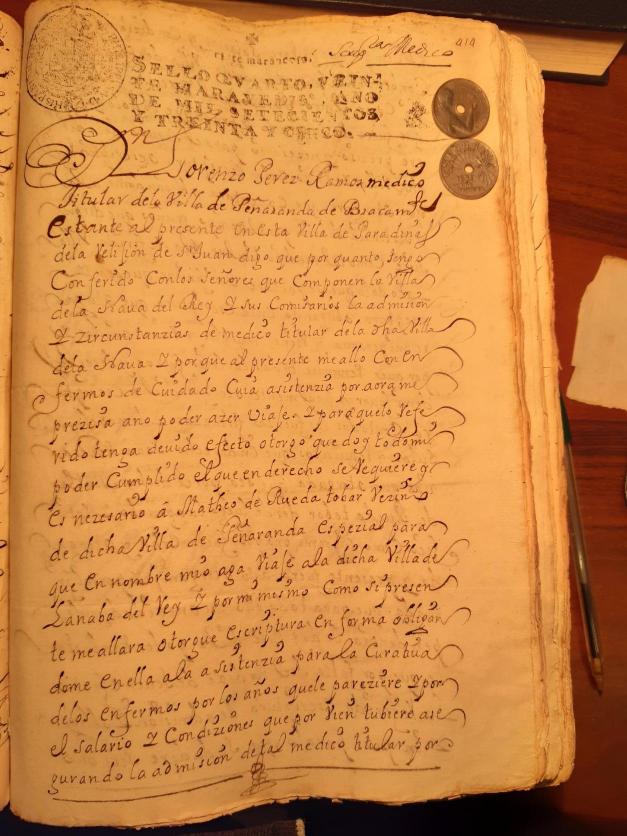 414
te maravedis.
SELLO QVARTO, VEIN-
TE MARAVEDIS, AÑO
DE MIL SETECIENTOS
Y TREINTA Y CINCO.
Lorenzo Perez Ramos medico
titular dela Villa de Peñaranda de Bracamte
Estante al presente en esta Villa de Paradinas
dela Relijion de Sn Juan digo que por quanto, tengo
Conferido Conlos señores, que Componen la Villa
dela Nava del Rey, y sus Comisarios la admision
y zircunstanzias de medico titular dela dha Villa
dela Nava y porque al presente me allo Con en
fermos de Cuidado Cuia asistenzia por aora me
preziza a no poder azer Viaje, y para quelo Refe
rido tenga devido efecto otorgo que doy todo mi
poder Cumplido el que en derecho se Requiere y
es nezesario â Matheo de Rueda tobar Vezino
de dicha Villa de Peñaranda espezial para
que en nombre mio aga Viaje ala dicha Villa de
Lanaba del Rey y por mi mismo Como si presen
te me allara otorgue escriptura en forma obligan
dome en ella ala asistenzia para la Curabua
delos enfermos por los años quele pareziere y por
el salario y Condiziones que por Vien tubiere ase
gurando la admision de tal medico titular por